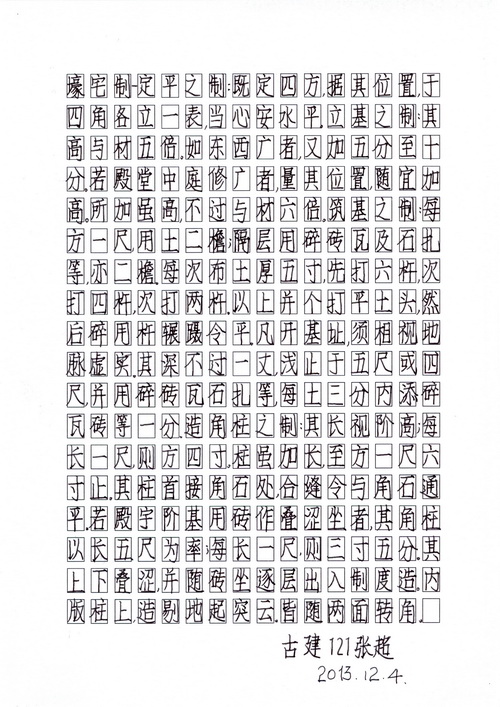 壕宅制-定平之制:既定四方,据其位置,于
四角各立一表,当心安水平.立基之制:其
高与材五倍.如东西广者,又加五分至十
分.若殿堂中庭修广者,量其位置,随宜加
高.所加虽高,不过与材六倍.筑基之制:每
方一尺,用土二檐;隔层用碎砖瓦及石扎
等,亦二檐.每次布土厚五寸,先打六杵,次
打四杵,次打两杵.以上并个打平土头,然
后碎用杵辗蹑令平.凡开基址,须相视地
脉虚实.其深不过一丈,浅止于五尺或四
尺,并用碎砖瓦石扎等,每土三分内添碎
瓦砖等一分.造角柱之制:其长视阶高;每
长一尺,则方四寸.柱虽加长至方一尺六
寸止.其柱首接角石处,合缝令与角石通
平.若殿宇阶基用砖作叠涩坐者,其角柱
以长五尺为率;每长一尺则三寸五分.其
上下叠涩,并随砖坐逐层出入制度造.内
版柱上,造剔地起突云.皆随两面转角.
古建121张超
2013.12.4.